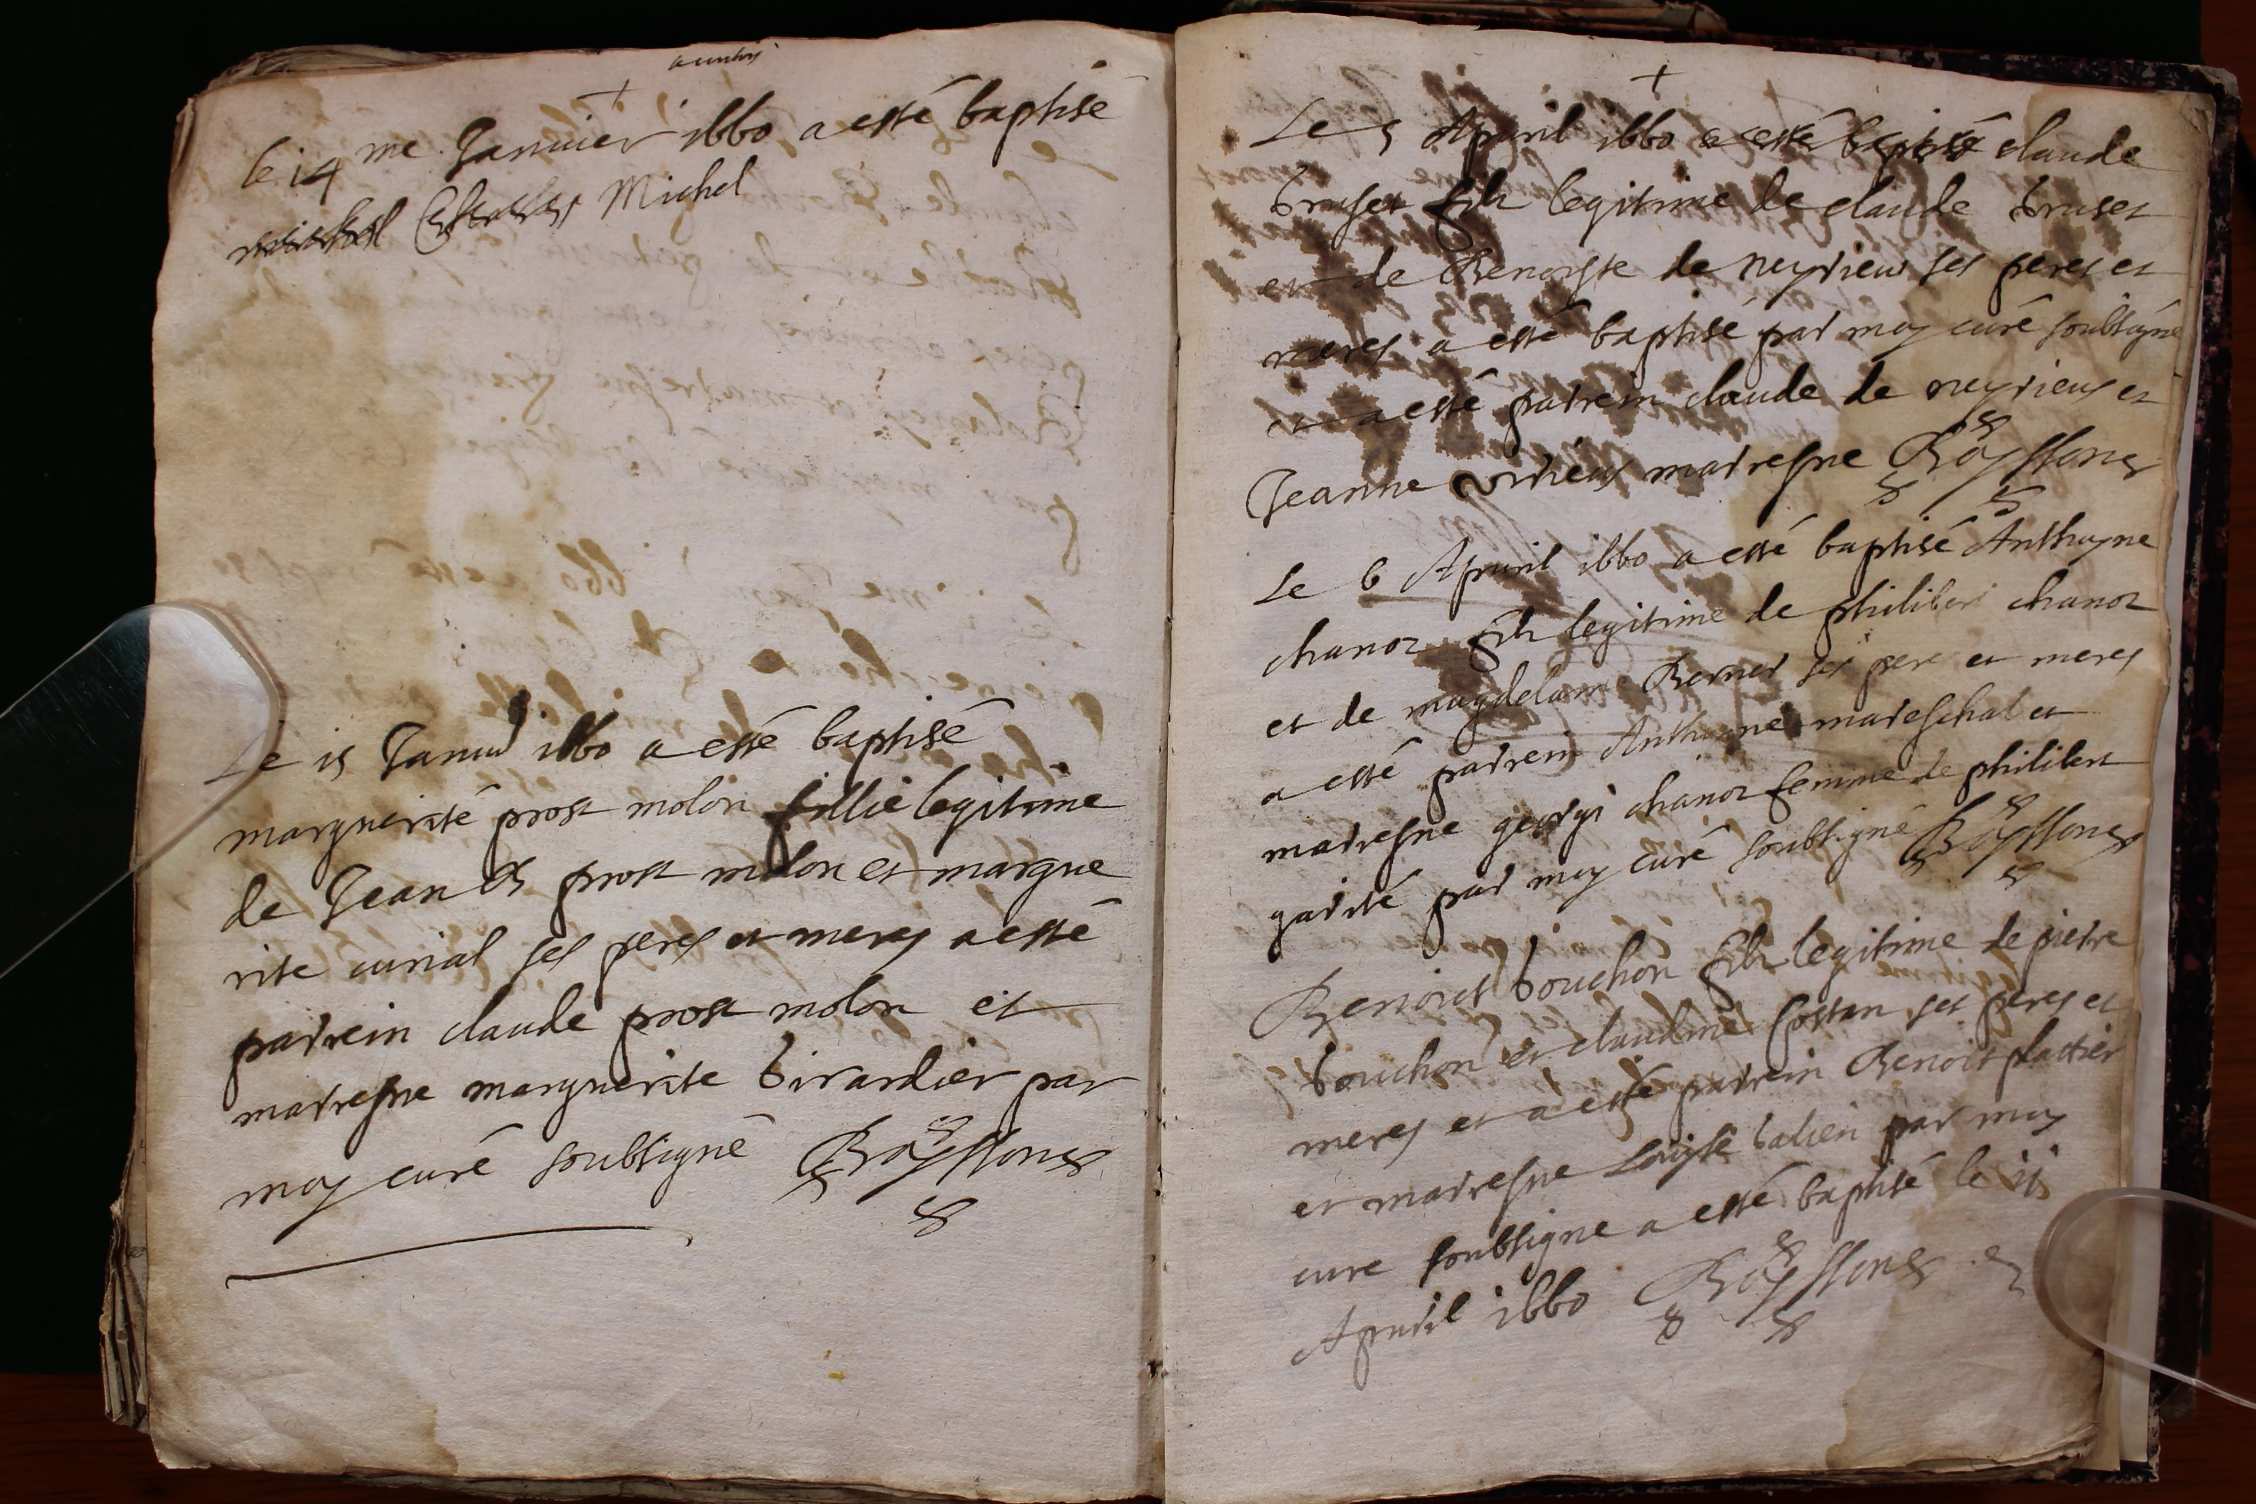 le 14 me Januier 1660 a esté baptisé
Michel
Le 15 Januier 1660 a esté baptisé
marguerité prost molon fillie legitime
de Jean prost molon et margue
rite curial ses peres et meres a esté
parrein claude prost molon et
marresne marguerite birardier par
moy curé soubsigné Boyssons
Le 5 Apuril 1660 a esté baptisé claude
bruset filz legitime de claude bruset
et de Benoiste de neyrieus ses peres et
meres a esté baptisé par moy curé soubsigné
et a esté parrein claude de neyrieus et
Jeanne virieus marresne Boyssons
Le 6 Apuril 1660 a esté baptisé Anthoyne
chanoz filz legitime de philibert chanoz
et de magdelanne Bernet ses pere et meres
a esté parrein Anthoyne mareschal et
marresne georgi chanoz femme de philibert
garité par moy curé soubsigné Boyssons
Benoist bouchon filz legitime de pierre
bouchon et claudine costan ses peres et
meres et a esté parrein Benoist plattier
et marresne Louyse par moy
cure soubsigne a esté baptisé le 11
Apuril 1660 Boyssons